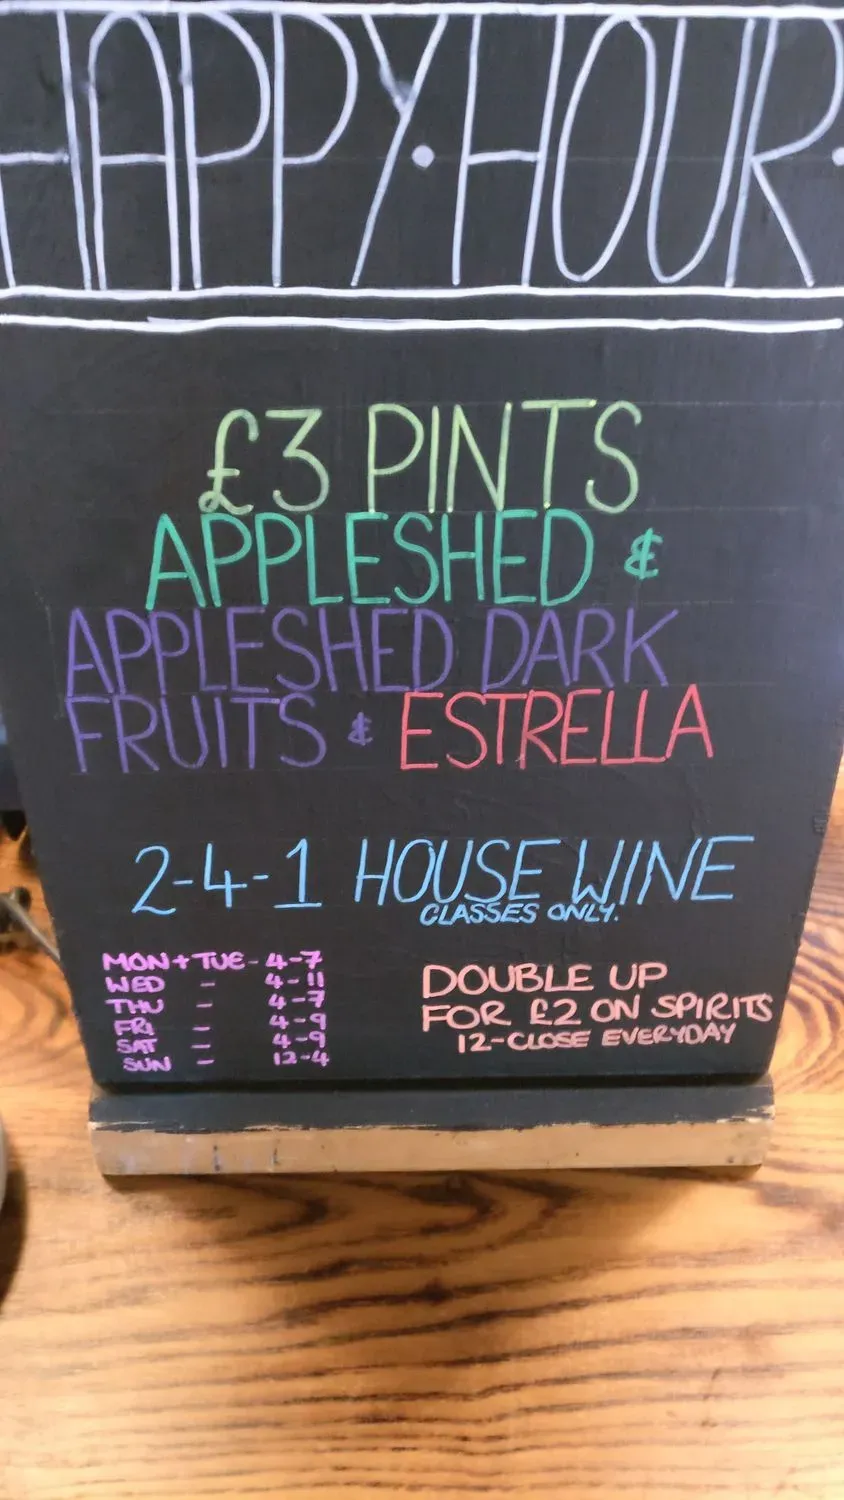 HAPPY·HOUR·
£3 PINTS
APPLESHED &
APPLESHED DARK
FRUITS & ESTRELLA
2-4-1 HOUSE WINE
GLASSES ONLY.
MON + TUE - 4-7
WED - 4-11
THU - 4-7
FRI - 4-9
SAT - 4-9
SUN - 12-4
DOUBLE UP
FOR £2 ON SPIRITS
12-CLOSE EVERYDAY